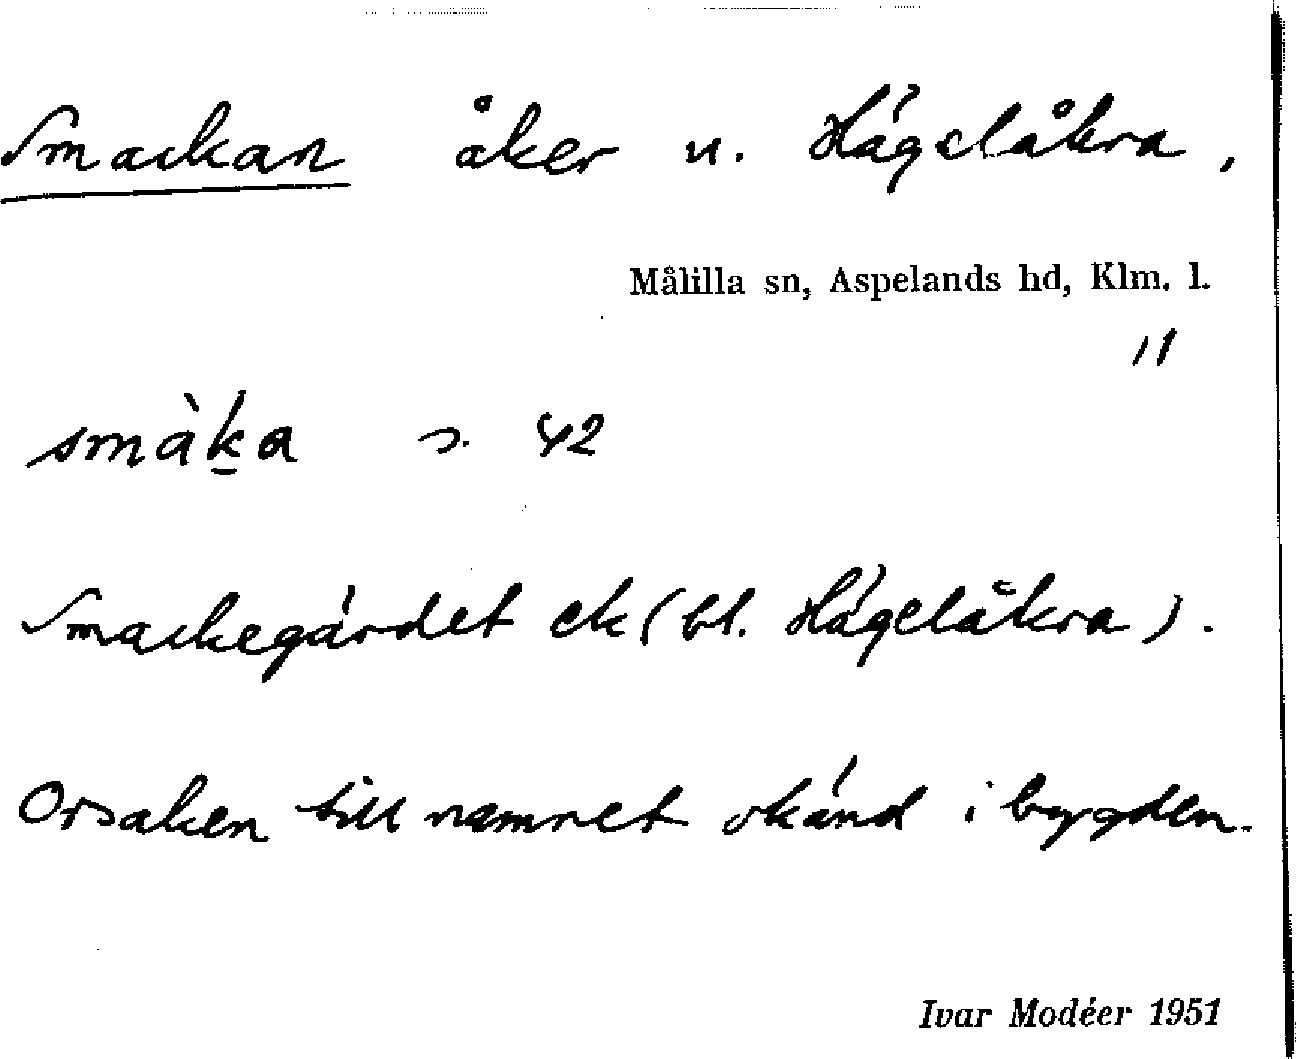 Smackan åker u. Hägelåkra,
Målilla sn, Aspelands hd, Klm. l.
11
smàk̲a s. 42
Smackegärdet ek (bl. Hägelåkra).
Orsaken till namnet okänd i bygden.
Ivar Modéer 1951